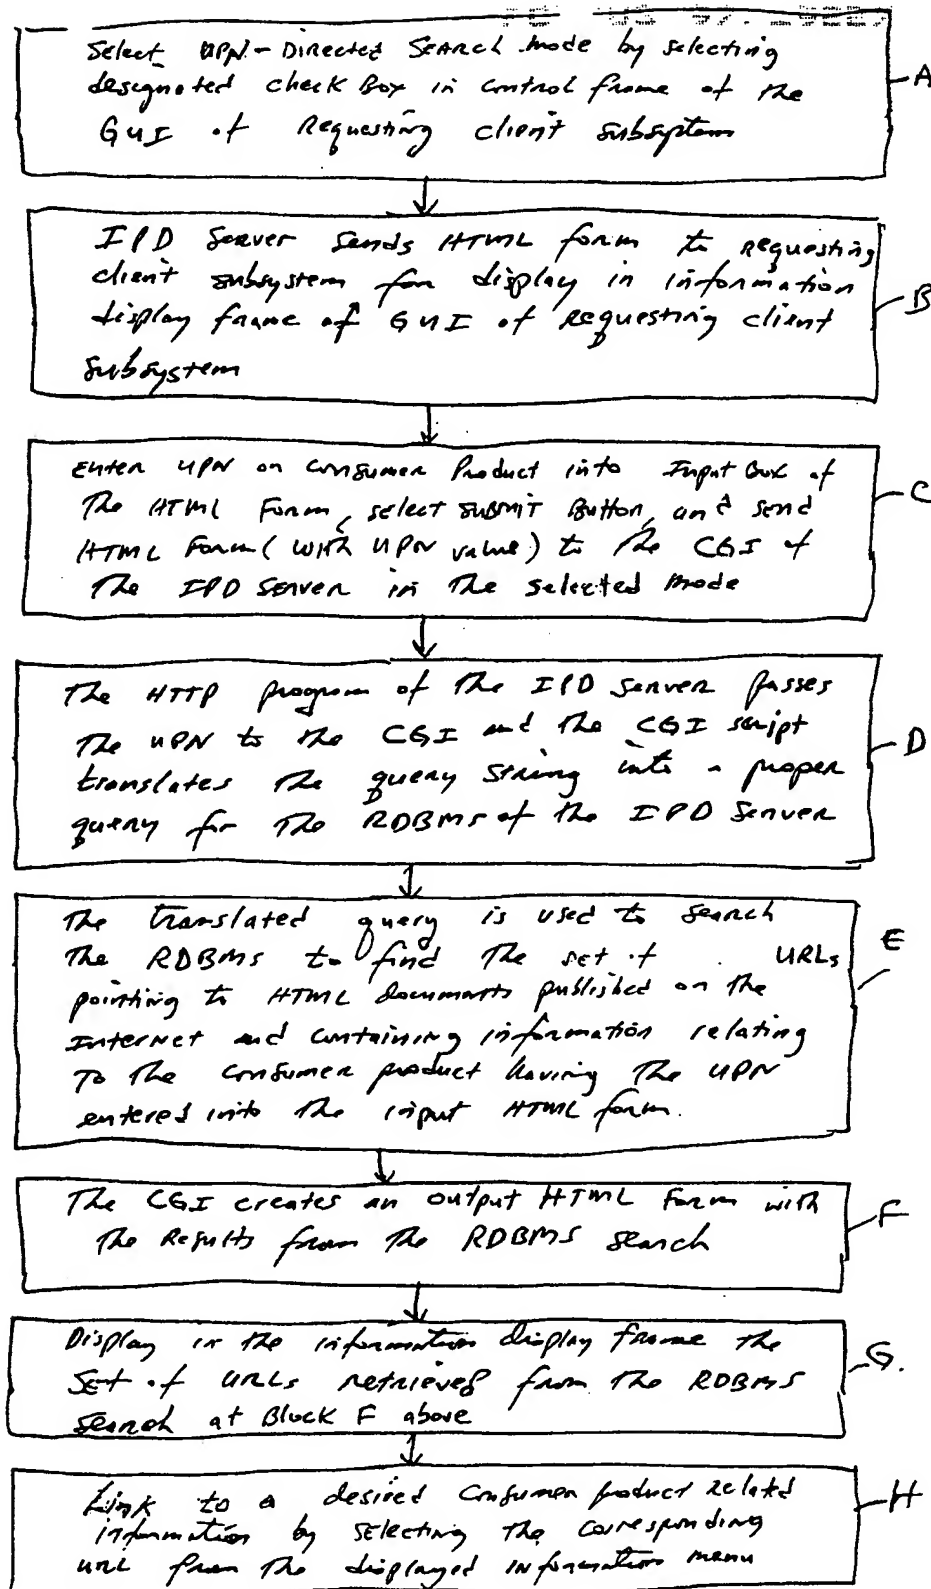 Select UPN-Directed Search mode by selecting
designated check Box in control frame of the
GUI of Requesting client subsystem
A
IPD Server sends HTML form to requesting
client subsystem for display in information
display frame of GUI of requesting client
subsystem
B
Enter UPN on Consumer Product into Input Box of
The HTML Form, select submit Button, and send
HTML Form (with UPN value) to the CGI of
The IPD Server in the selected mode
C
The HTTP program of the IPD Server passes
The UPN to the CGI and the CGI script
translates the query string into a proper
query for the RDBMS of the IPD Server
D
The translated query is used to search
the RDBMS to find the set of URLs
pointing to HTML documents published on the
Internet and containing information relating
To the consumer product having the UPN
entered into the input HTML form.
E
The CGI creates an output HTML Form with
The Results from the RDBMS search
F
Display in the information display frame the
Set of URLs retrieved from the RDBMS
search at Block F above
G.
Link to a desired consumer product related
information by selecting the corresponding
URL from the displayed information menu
H